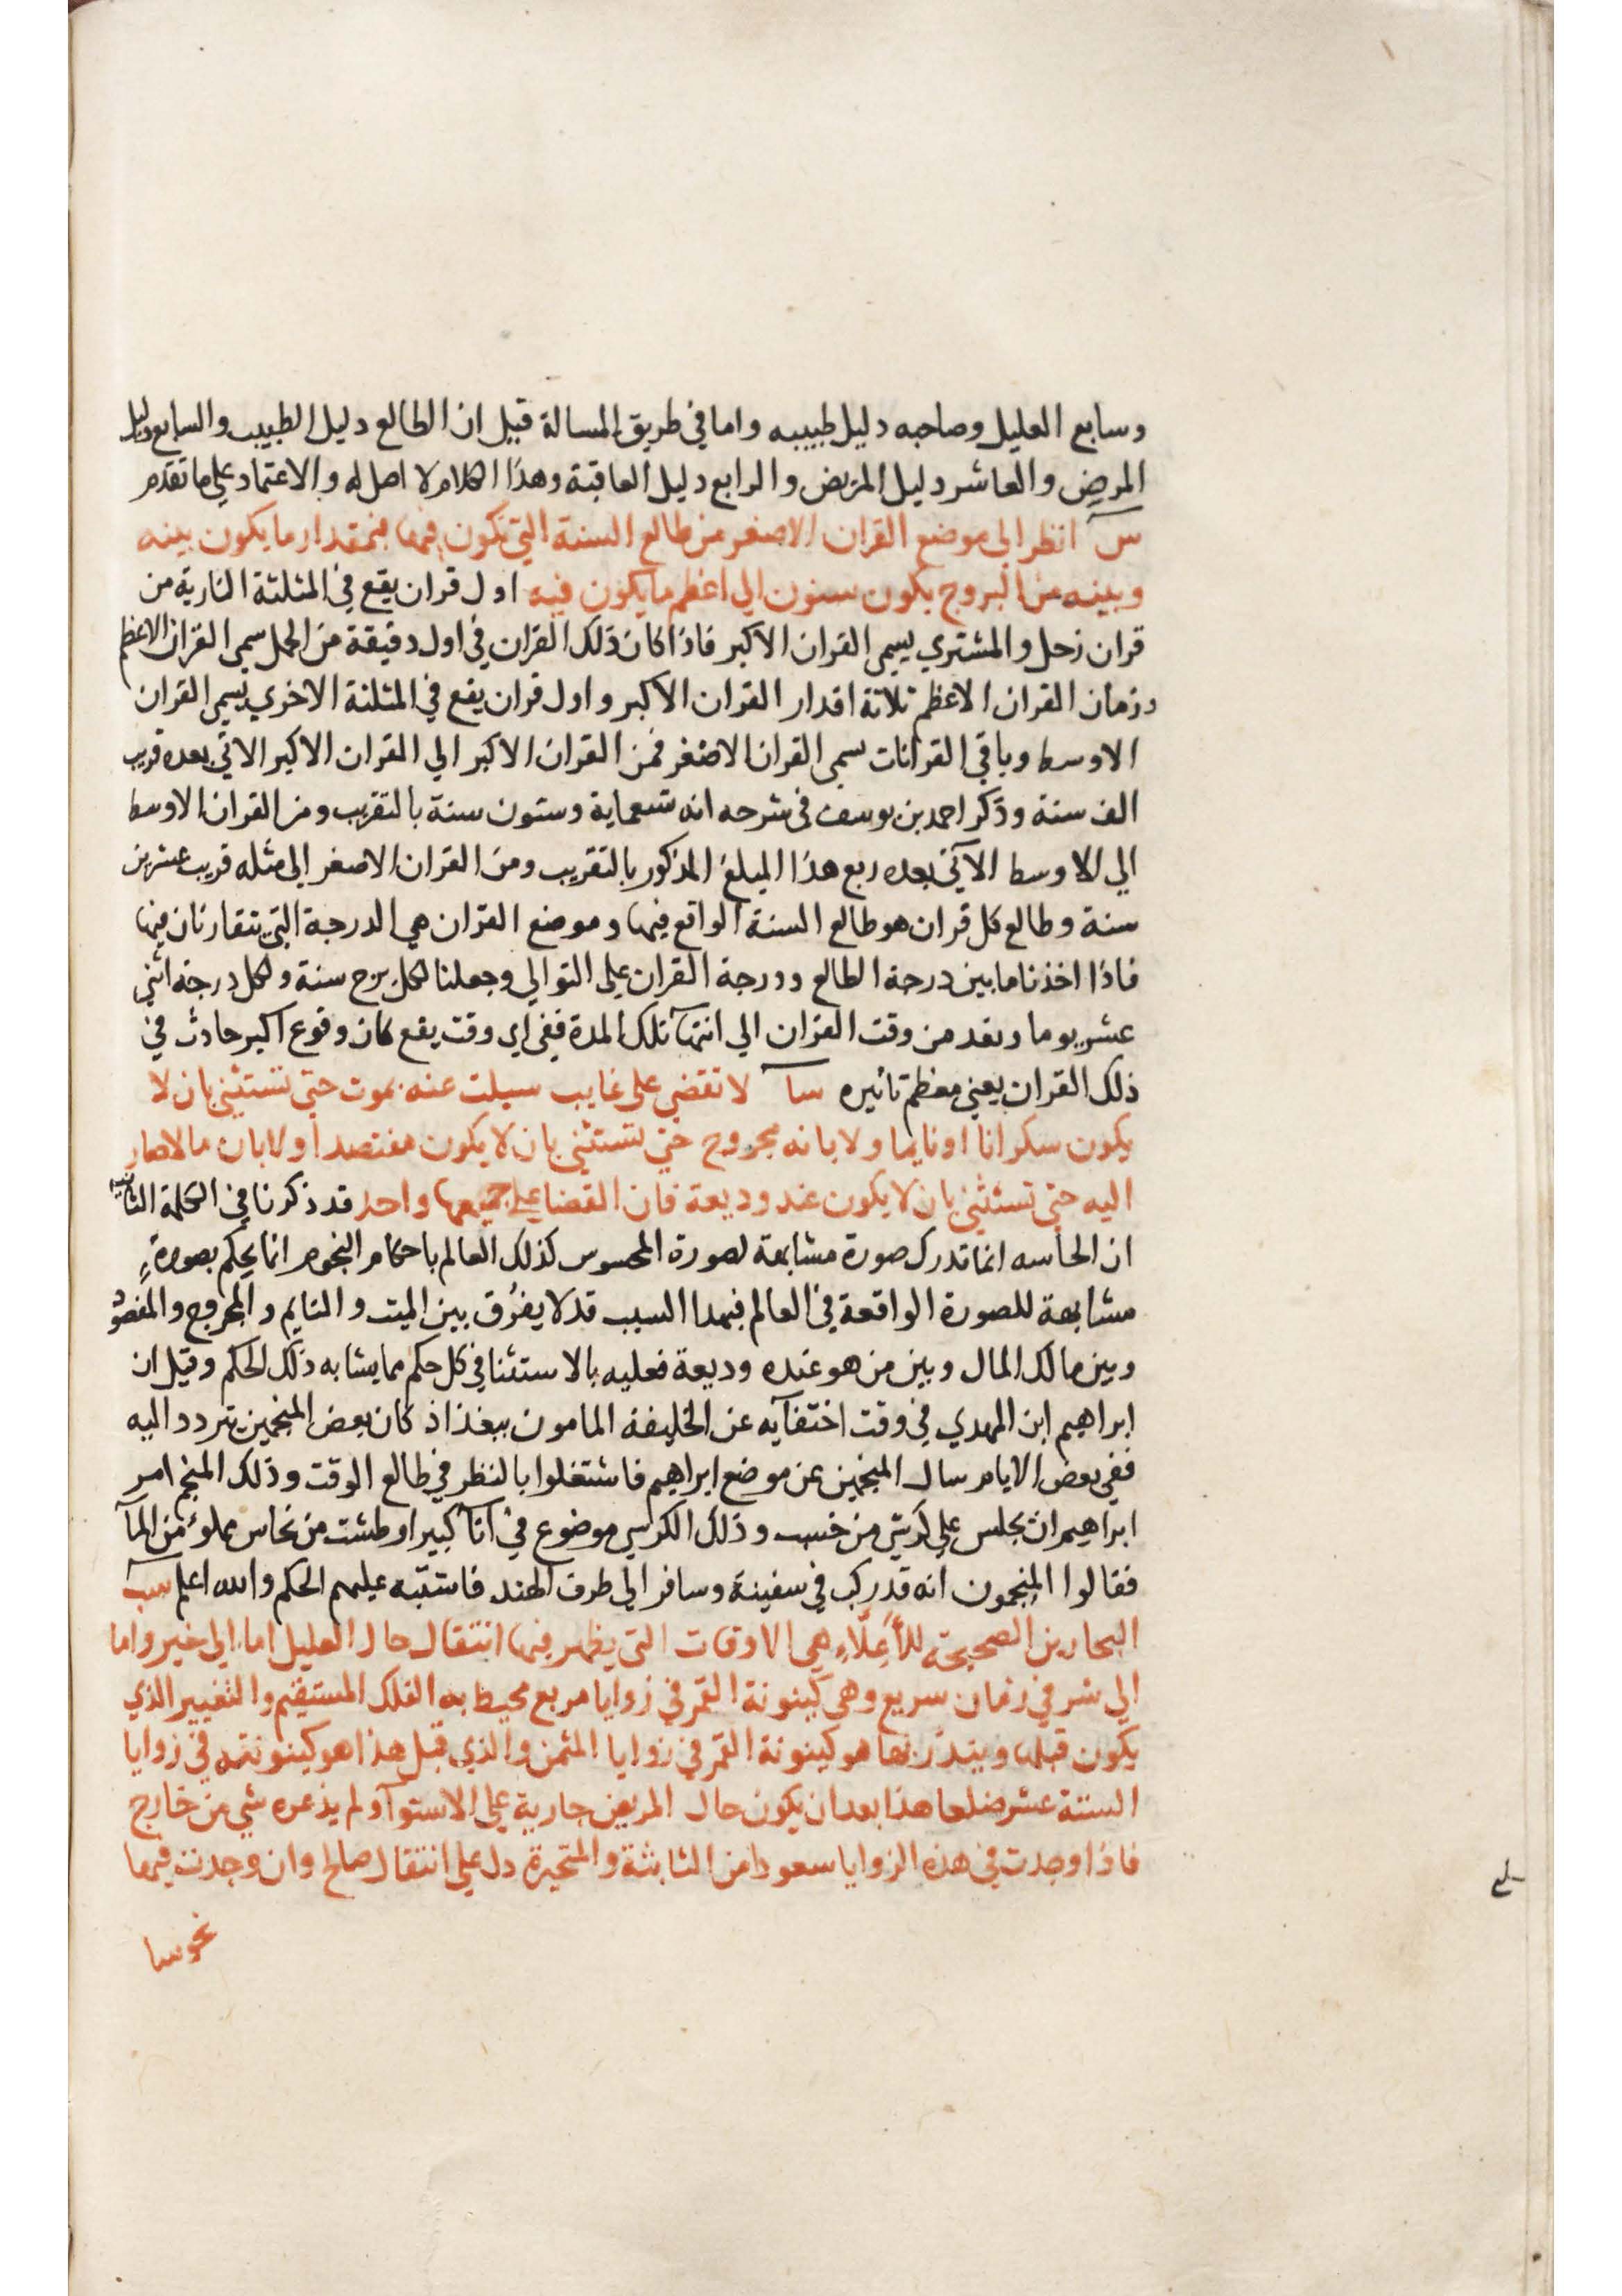 وسابع العليل وصاحبه دليل طبيبه واما في طريق المسالة قيل ان الطالع دليل الطبيب والسابع دليل
المرض والعاشر دليل المريض والرابع دليل العاقبة وهذا الكلام لا اصل له والاعتماد على ما تقدم
س انظر الى موضع القران الاصغر من طالع السنة التي تكون فيها فبمقدار ما يكون بينه
وبينه من البروج يكون سنون الى اعظم ما يكون فيه اول قران يقع في المثلثة النارية من
قران زحل والمشتري يسمى القران الاكبر فاذا كان ذلك القران في اول دقيقة من الحمل سمى القران الاعظم
وزمان القران الاعظم ثلاثة اقدار القران الاكبر واول قران يقع في المثلثة الاخري يسمى القران
الاوسط وباقي القرانات سمى القران الاصغر فمن القران الاكبر الي القران الاكبر الاتي بعده قريب
الف سنة وذكر احمد بن يوسف في شرحه انه تسعماية وستون سنة بالتقريب ومن القران الاوسط
الي الاوسط الآتي بعده ربع هذا المبلغ المذكور بالتقريب ومن القران الاصغر الى مثله قريب عشرين
سنة وطالع كل قران هو طالع السنة الواقع فيها وموضع القران هي الدرجة التي يتقارنان فيها
فاذا اخذنا ما بين درجة الطالع ودرجة القران على التوالي وجعلنا لكل برج سنة ولكل درجة اثني
عشر يوما ونعد من وقت القران الي انتهآ تلك المدة ففي اي وقت يقع كان وقوع اكبر حادث في
ذلك القران يعني معظم تاثيره سا لا تقضي على غايب سيلت عنه بموت حتى تستثني بان لا
يكون سكرانا او نايما ولا بانه مجروح حتى تستثني بان لا يكون مفتصدا ولا بان مالا صار
اليه حتى تستثني بان لا يكون عند وديعة فان القضا على جميعها واحد قد ذكرنا في الكلمة الثانية
ان الحاسه انما تدرك صورة مشابهة لصورة المحسوس كذلك العالم باحكام النجوم انما يحكم بصورةٍ
مشابهة للصورة الواقعة في العالم فبهذا السبب قد لا يفرُق بين الميت والنايم والمجروح والمفصود
وبين مالك المال وبين من هو عنده وديعة فعليه بالاستثنا في كل حكم مما يشابه ذلك الحكم وقيل ان
ابراهيم ابن المهدي في وقت اختفآيه عن الخليفة المامون ببغداد كان بعض المنجمين يتردد اليه
ففي بعض الايام سال المنجمين عن موضع ابراهيم فاشتغلوا بالنظر في طالع الوقت وذلك المنجم امر
ابراهيم ان يجلس على كرسي من خسب وذلك الكرسي موضوع في انآ كبير او طشت من نحاس مملوء من المآ
فقالوا المنجمون انه قد ركب في سفينة وسافر الى طرف الهند فاشتبه عليهم الحكم والله اعلم سب
البحارين الصحيحة للأَعِلَّاءِ هي الاوقات التي يظهر فيها انتقال حال العليل اما الى خير واما
الى شر في زمان سريع وهي كينونة القمر في زوايا مربع محيط به الفلك المستقيم والتغيير الذي
يكون قبلها وينذر بها هو كينونة القمر في زوايا المثمن والذي قبل هذا هو كينونته في زوايا
الستة عشر ضلعا هذا بعد ان يكون حال المريض جارية على الاستوآ ولم يذعره شي من خارج
فاذا وجدت في هذه الزوايا سعودا من الثابتة والمتحيرة دل على انتقال صالح وان وجدت فيها
نحوسا